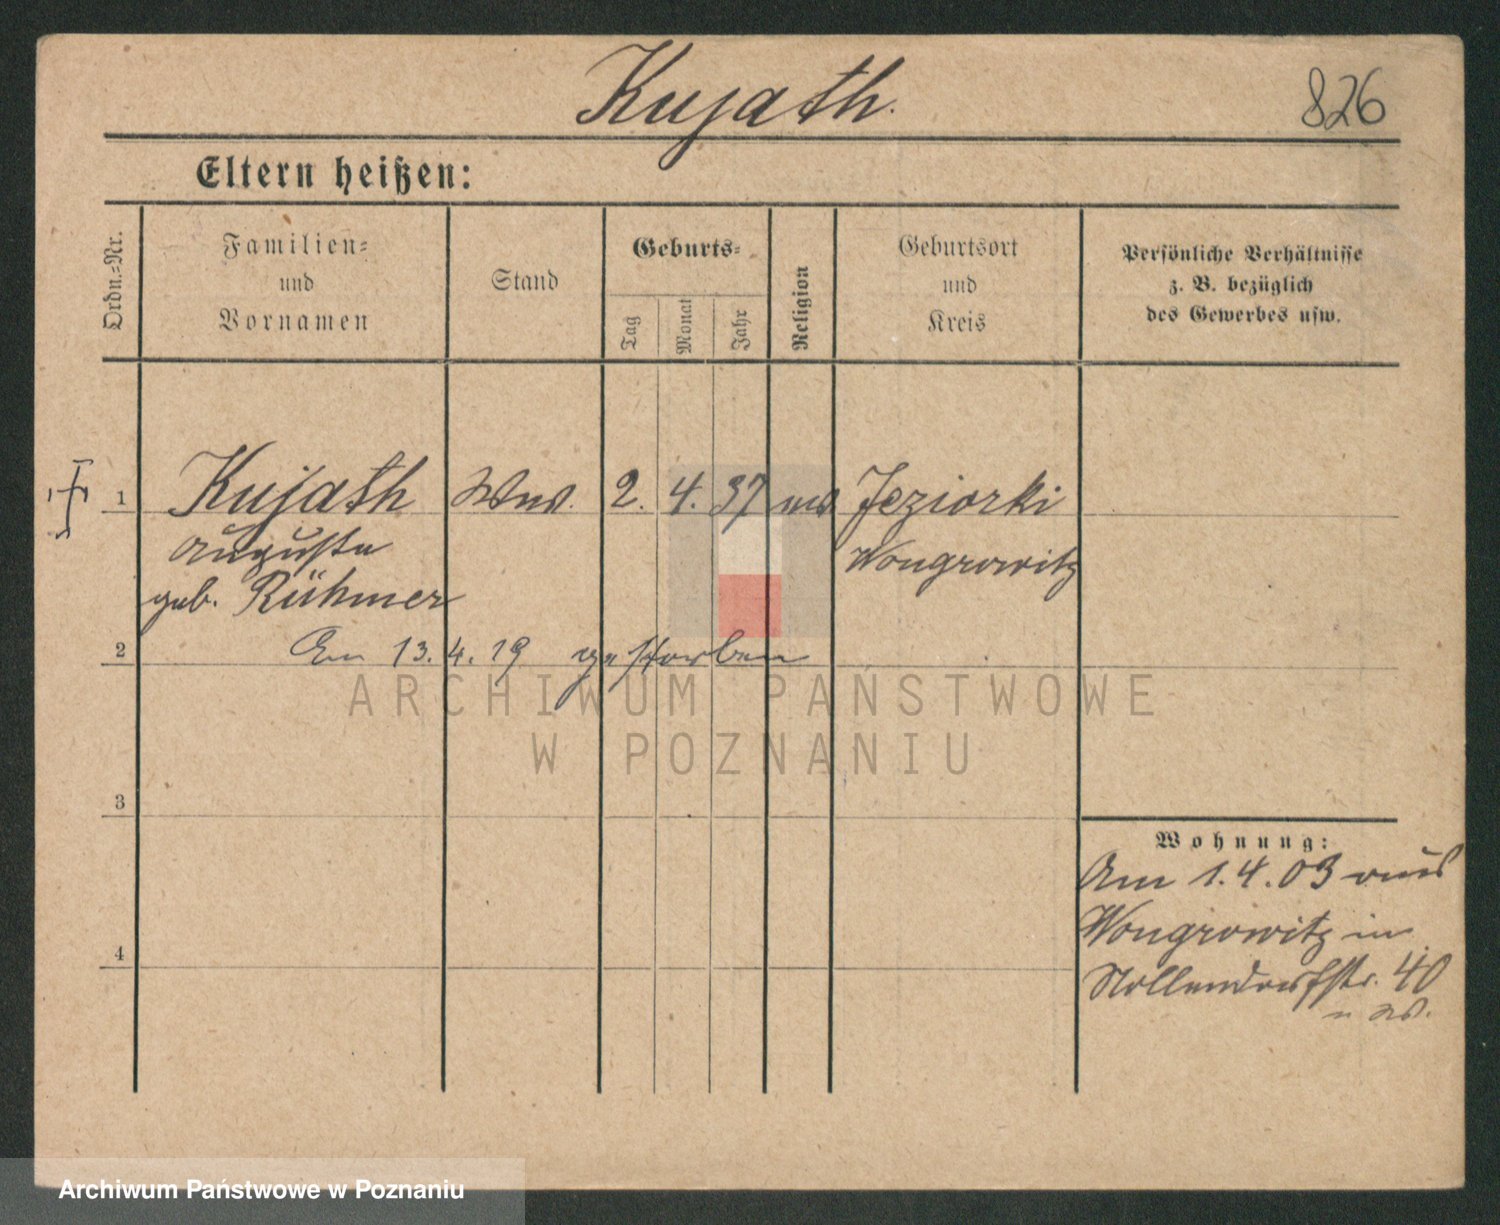 Kujath.
826
Eltern heißen:
Ordn.-Nr.
Familien-
und
Vornamen
Stand
Geburts-
Tag
Monat
Jahr
Religion
Geburtsort
und
Kreis
Persönliche Verhältnisse
z. B. bezüglich
des Gewerbes usw.
1 Kujath Wwe. 2. 4. 37 Jeziorki
Auguste Wongrowitz
geb. Rühmer
2 Am 13. 4. 19 gestorben
ARCHIWUM PAŃSTWOWE
W POZNANIU
3
Wohnung:
Am 1. 4. 03 aus
Wongrowitz in
4
Nollendorfstr. 40
Archiwum Państwowe w Poznaniu